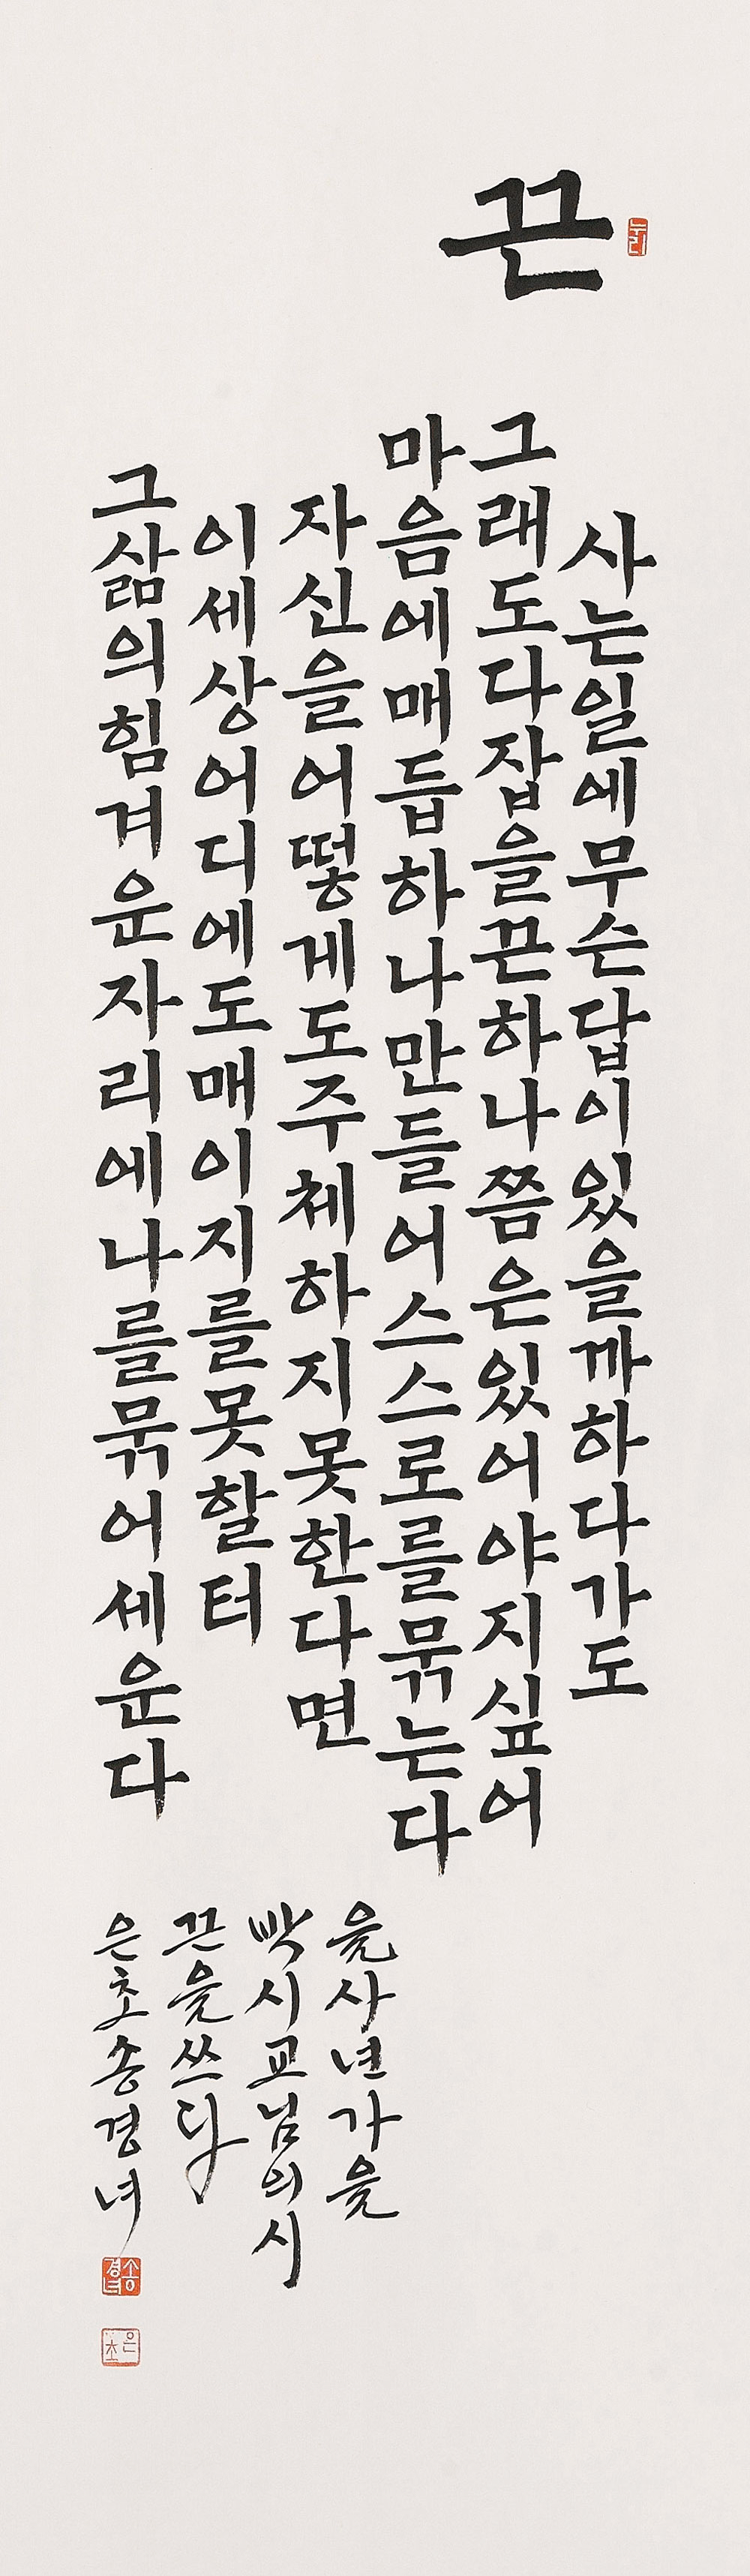 끈
누리
사는일에무슨답이있을까하다가도
그래도다잡을끈하나쯤은있어야지싶어
마음에매듭하나만들어스스로를묶는다
자신을어떻게도주체하지못한다면
이세상어디에도매이지를못할터
그삶의힘겨운자리에나를묶어세운다
을사년가을
박시교님의시
끈을쓰다
은초송경녀
송경녀
은초